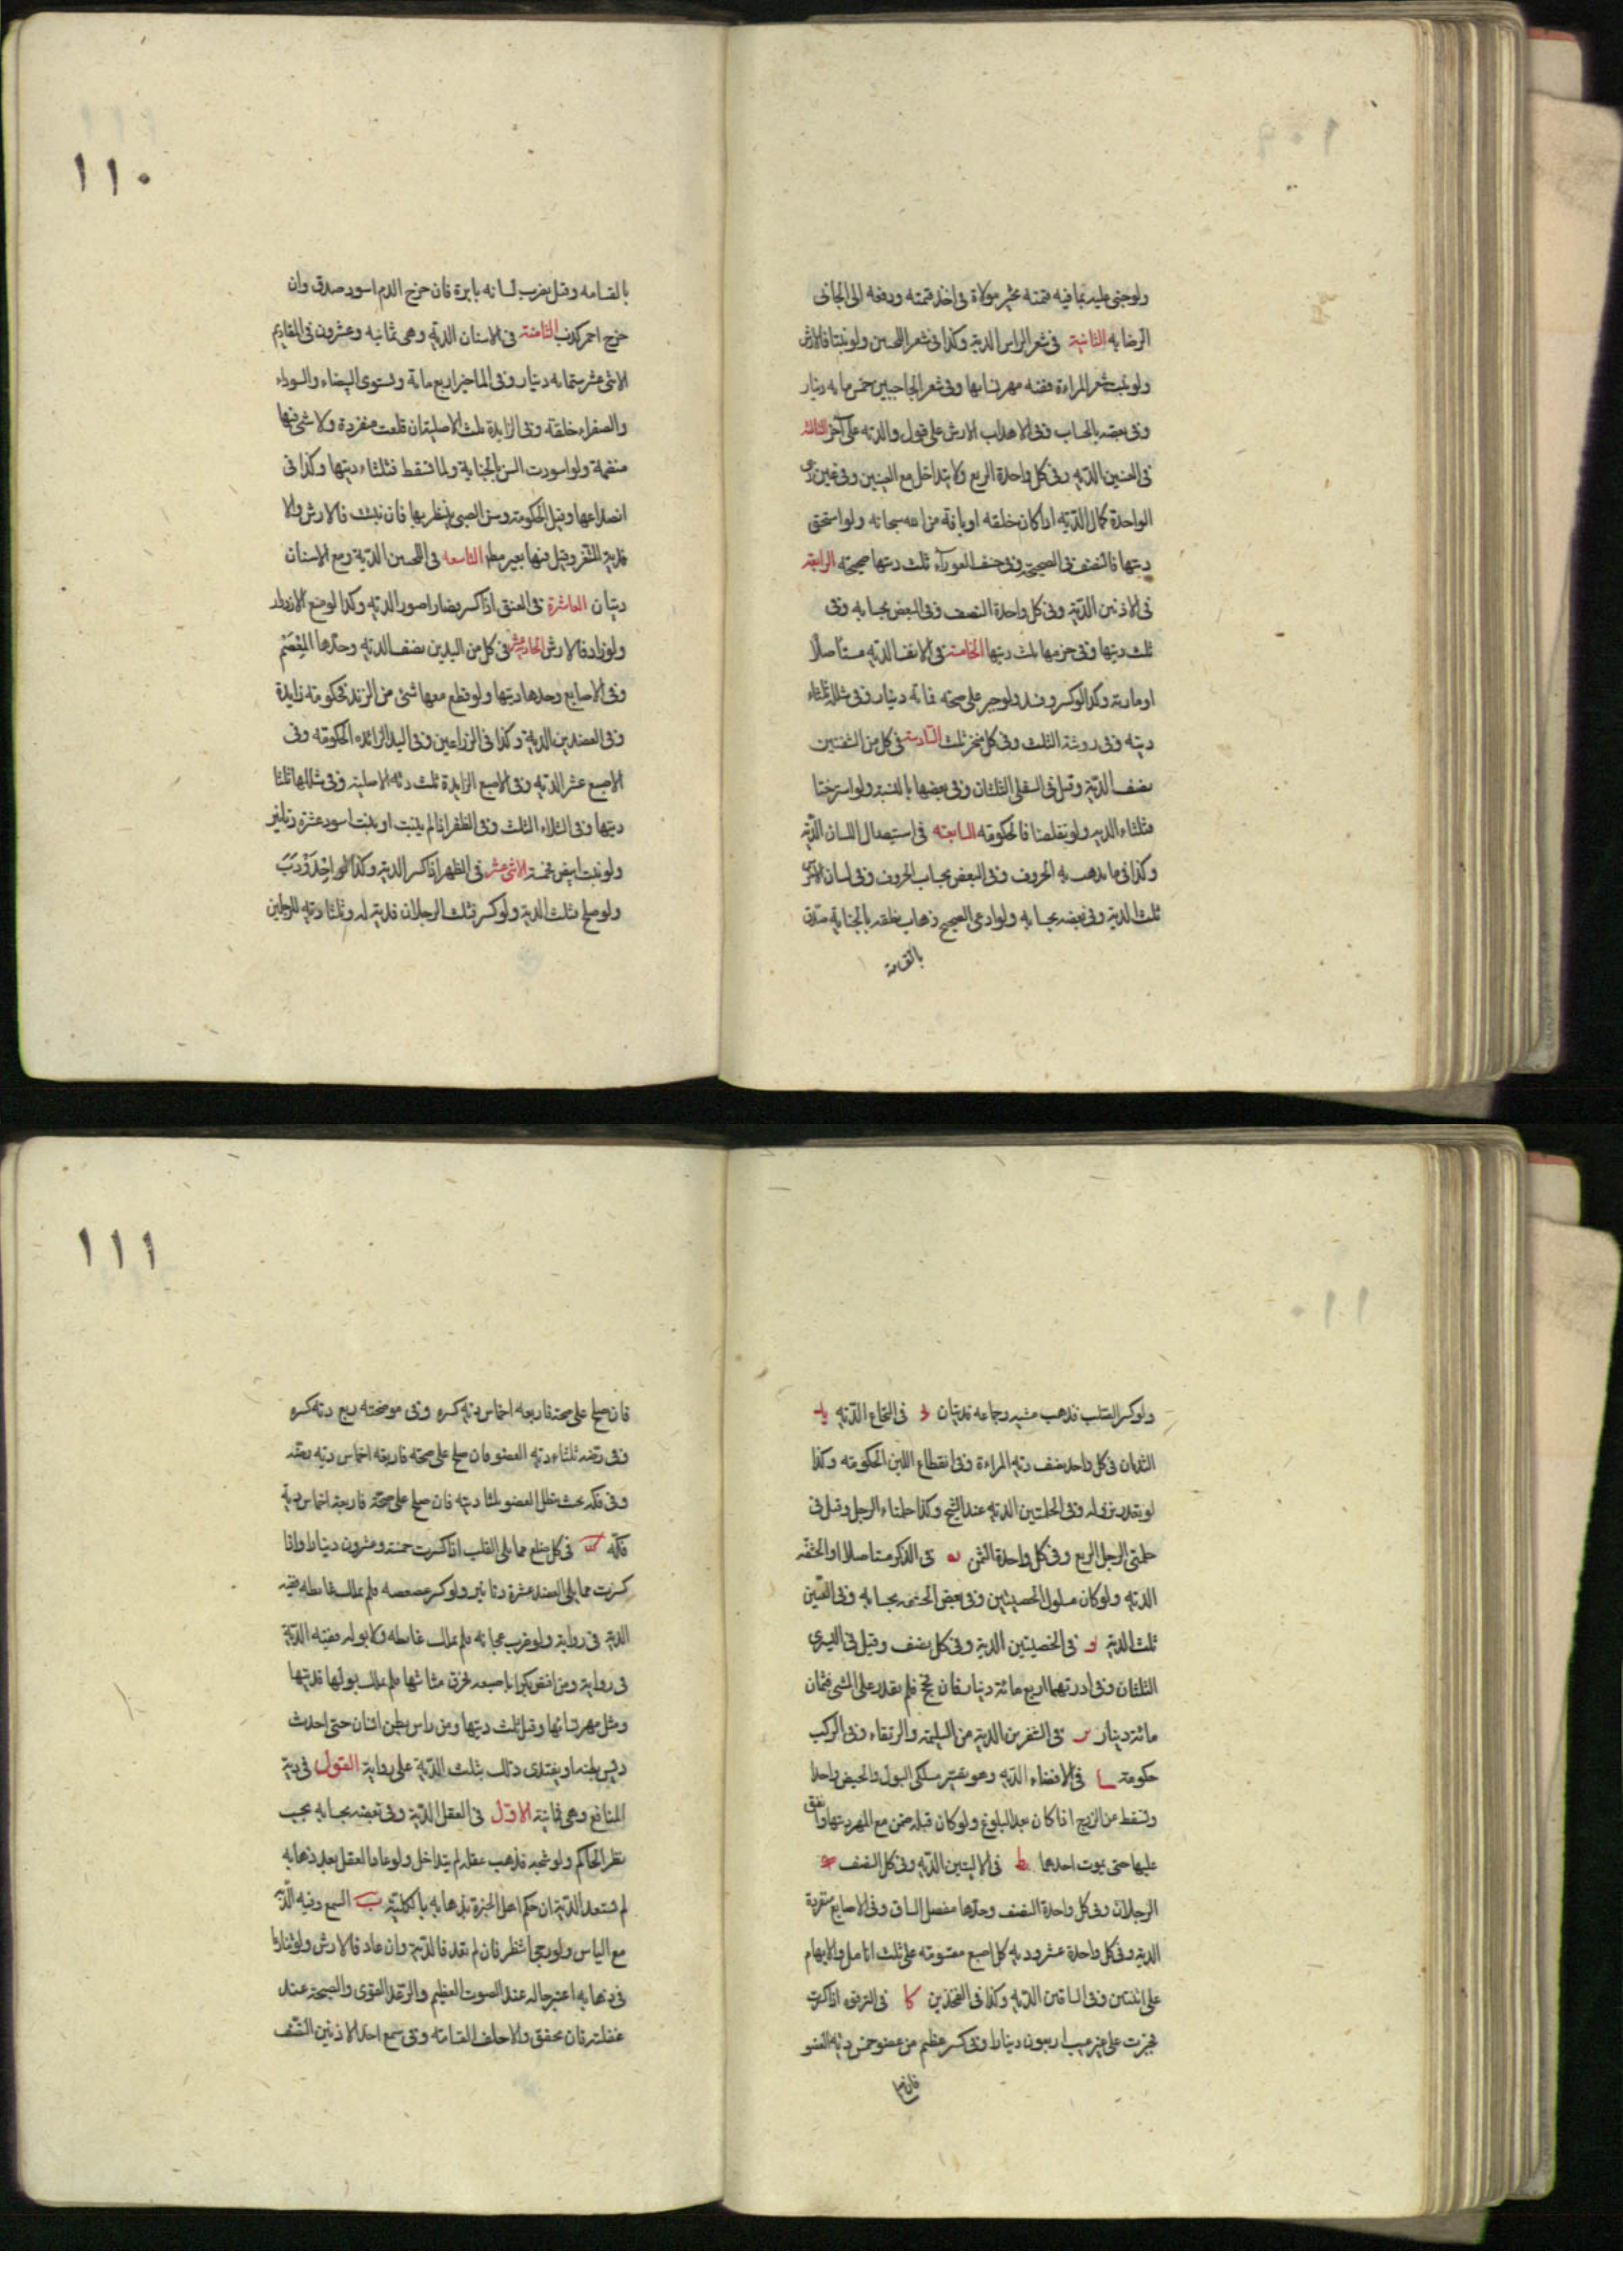 ولو جنى عليه بما فيه قيمته تخير مولاه في اخذ قيمته ودفعه الى الجاني
الرضا به الثانية في شعر الراس الدية وكذا في شعر اللحيين ولو نبتا فالارش
ولو نبت شعر المراءة ففيه مهر نسائها وفي شعر الحاجبين خمس مايه دينار
وفي بعضه بالحساب وفي الاهداب الارش على قول والدية على آخر الثالثة
في العينين الدية وفي كل واحدة الربع ولا يتداخل مع العينين وفي عين ذي
الواحدة كمال الدية اذا كان خلقه او بافة من الله سبحانه ولو استحق
ديتها فالنصف في الصحيحة وفي خسف العوراء ثلث ديتها صحيحة الرابعة
في الاذنين الدية وفي كل واحدة النصف وفي البعض بحسابه وفي
ثلث ديتها وفي خرمها ثلث ديتها الخامسة في الانف الدية مستأصلا
او مارنه وكذا لو كسر وفسد ولو جبر على صحة فمائة دينار وفي شلله ثلثاء
ديته وفي روثته الثلث وفي كل منخر ثلث السادسة في كل من الشفتين
نصف الدية وقيل في السفلى الثلثان وفي بعضها بالنسبة ولو استرختا
فثلثاء الدية ولو تقلصتا فالحكومة السابعة في استيصال اللسان الدية
وكذا في ما يذهب به الحروف وفي البعض بحساب الحروف وفي لسان الاخرس
ثلث الدية وفي بعضه بحسابه ولو ادعى الصحيح ذهاب نطقه بالجناية صدق
بالقسامة
١١٠
بالقسامه وقيل يضرب لسانه بابرة فان خرج الدم اسود صدق وان
خرج احمر كذب الثامنة في الاسنان الدية وهي ثمانيه وعشرون في المقاديم
الاثنى عشر ستمايه دينار وفي الماخير اربع ماية وتستوى البيضاء والسوداء
والصفراء خلقة وفي الزايدة ثلث الاصلية ان قلعت منفردة ولا شئ فيها
منضمة ولو اسودت السن بالجناية ولما تسقط فثلثاء ديتها وكذا في
انصداعها وقيل الحكومة وسن الصبى ينتظر بها فان نبتت فالارش والا
فدية المثغر وقيل فيها بعير مطلقا التاسعه في اللحيين الدية ومع الاسنان
ديتان العاشرة في العنق اذا كسر فصار اصور الدية وكذا لو منع الازدراد
ولو زاد فالارش الحادية عشر في كل من اليدين نصف الدية وحدها المعصم
وفي الاصابع وحدها ديتها ولو قطع معها شئ من الزند فحكومة زايدة
وفي العضدين الدية وكذا في الذراعين وفي اليد الزائده الحكومة وفي
الاصبع عشر الدية وفي الاصبع الزايدة ثلث دية الاصلية وفي شللها ثلثا
ديتها وفي الشلاء الثلث وفي الظفر اذا لم ينبت او نبت اسود عشرة دنانير
ولو نبت ابيض خمسة الاثنى عشر في الظهر اذا كسر الدية وكذا لو احدودب
ولو صلح فثلث الدية ولو كسر فشلت الرجلان فدية له وثلثا دية للرجلين
ولو كسر الصلب فذهب مشيه وجماعه فديتان في النخاع الدية
الثديان في كل واحد نصف دية المراءة وفي انقطاع اللبن الحكومة وكذا
لو تعذر نزوله وفي الحلمتين الدية عند الشيخ وكذا حلمتاء الرجل وقيل في
حلمتى الرجل الربع وفي كل واحدة الثمن يه في الذكر مستاصلا او الحشفه
الدية ولو كان مسلول الخصيتين وفي بعض الحشفه بحسابه وفي العنين
ثلث الدية يو في الخصيتين الدية وفي كل نصف وقيل في اليسرى
الثلثان وفي ادرتهما اربع مائة دينار فان فحج فلم يقدر على المشى فثمان
مائة دينار يز في الشفرين الدية من السليمة والرتقاء وفي الركب
حكومة يح في الافضاء الدية وهو تصيير مسلكى البول والحيض واحدا
وتسقط عن الزوج اذا كان بعد البلوغ ولو كان قبله ضمن مع المهر ديتها وانفق
عليها حتى يموت احدهما يط في الاليتين الدية وفي كل النصف ك
الرجلان وفي كل واحدة النصف وحدها مفصل الساق وفي الاصابع منفردة
الدية وفي كل واحدة عشر ودية كل اصبع مقسومة على ثلث انامل والابهام
على اثنتين وفي الساقين الدية وكذا في الفخذين كا في الترقوة اذا كسرت
فجبرت على غير عيب اربعون دينارا وفي كسر عظم من عضو خمس دية العضو
فان صلح
١١١
فان صلح على صحة فاربعه اخماس دية كسره وفي موضحته ربع دية كسره
وفي رضه ثلثاء دية العضو فان صلح على صحة فاربعه اخماس دية رضه
وفي فكه بحيث يتعطل العضو ثلثا ديته فان صلح على صحة فاربعة اخماس دية
فكه كب في كل ضلع مما يلى القلب اذا كسرت خمسة وعشرون دينارا واذا
كسرت مما يلى العضد عشرة دنانير ولو كسر عصعصه فلم يملك غايطه ففيه
الدية في رواية ولو ضرب عجانه فلم يملك غايطه ولا بوله ففيه الدية
في رواية ومن افتض بكرا باصبعه فخرق مثانتها فلم يملك بولها فديتها
ومثل مهر نسائها وقيل ثلث ديتها ومن داس بطن انسان حتى احدث
ديس بطنه او يفتدى ذلك بثلث الدية على رواية القول في دية
المنافع وهي ثمانية الاول في العقل الدية وفي بعضه بحسابه بحسب
نظر الحاكم ولو شجه فذهب عقله لم يتداخل ولو عاد العقل بعد ذهابه
لم تستعد الدية ان حكم اهل الخبرة بذهابه بالكلية ب السمع وفيه الدية
مع الياس ولو رجى انتظر فان لم يعد فالدية وان عاد فالارش ولو تنازعا
في ذهابه اعتبر حاله عند الصوت العظيم والرعد القوى والصيحة عند
غفلته فان تحقق والا حلف القسامة وفي سمع احد الاذنين النصف